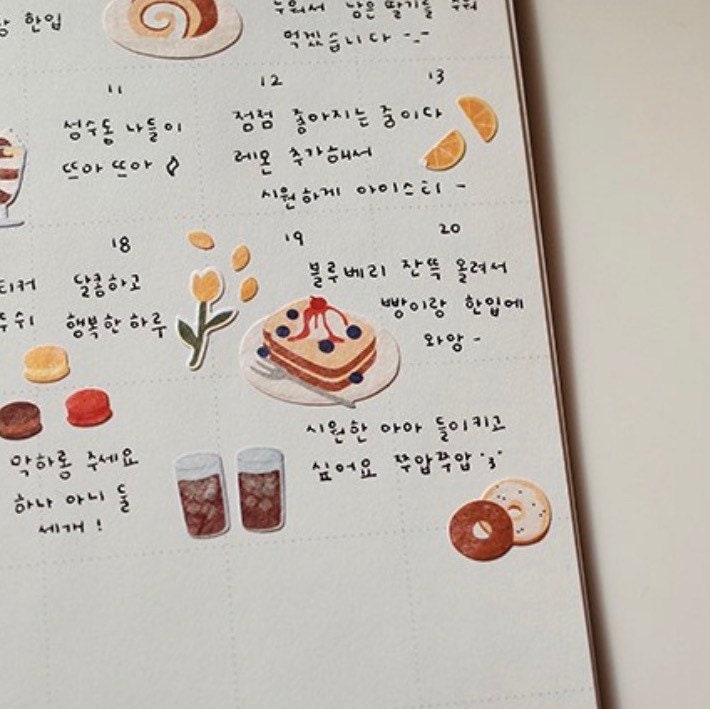 한입
누워서 남은 딸기를
먹겠습니다 -.-
11 12 13
성수동 나들이
뜨아 뜨아
점점 좋아지는 중이다
레몬 추가해서
시원하게 아이스티 ~
18 19 20
달콤하고
행복한 하루
블루베리 잔뜩 올려서
빵이랑 한입에
와앙 ~
막하롱 주세요
하나 아니 둘
세개 !
시원한 아아 들이키고
싶어요 쭈압쭈압 '3'